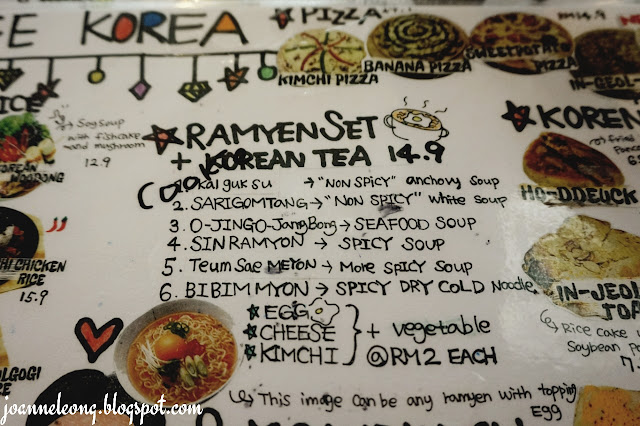 EE KOREA
PIZZA
RM14.9
KIMCHI PIZZA
BANANA PIZZA
SWEETPOTATO PIZZA
IN-JEOL
ICE
Soy Soup
with fishcake
and mushroom
12.9
KOREAN
RAMYEN SET
+ KOREAN TEA 14.9
COOKED
1. Kal guk su → "NON SPICY" anchovy soup
2. SARIGOMTANG → "NON SPICY" white soup
3. O-JINGO-Jang Bong → SEAFOOD SOUP
4. SIN RAMYON → SPICY SOUP
5. Teum Sae MEYON → More SPICY SOUP
6. BIBIM MYON → SPICY DRY COLD Noodle
EGG
CHEESE
KIMCHI
+ vegetable
@RM2 EACH
This image can be any ramyen with topping
Egg
HI CHICKEN
RICE
15.9
LGOGI
KOREN
fried
HO-DDEUCK
IN-JEOL
TO
Rice cake
Soybean
7.
joanneleong.blogspot.com